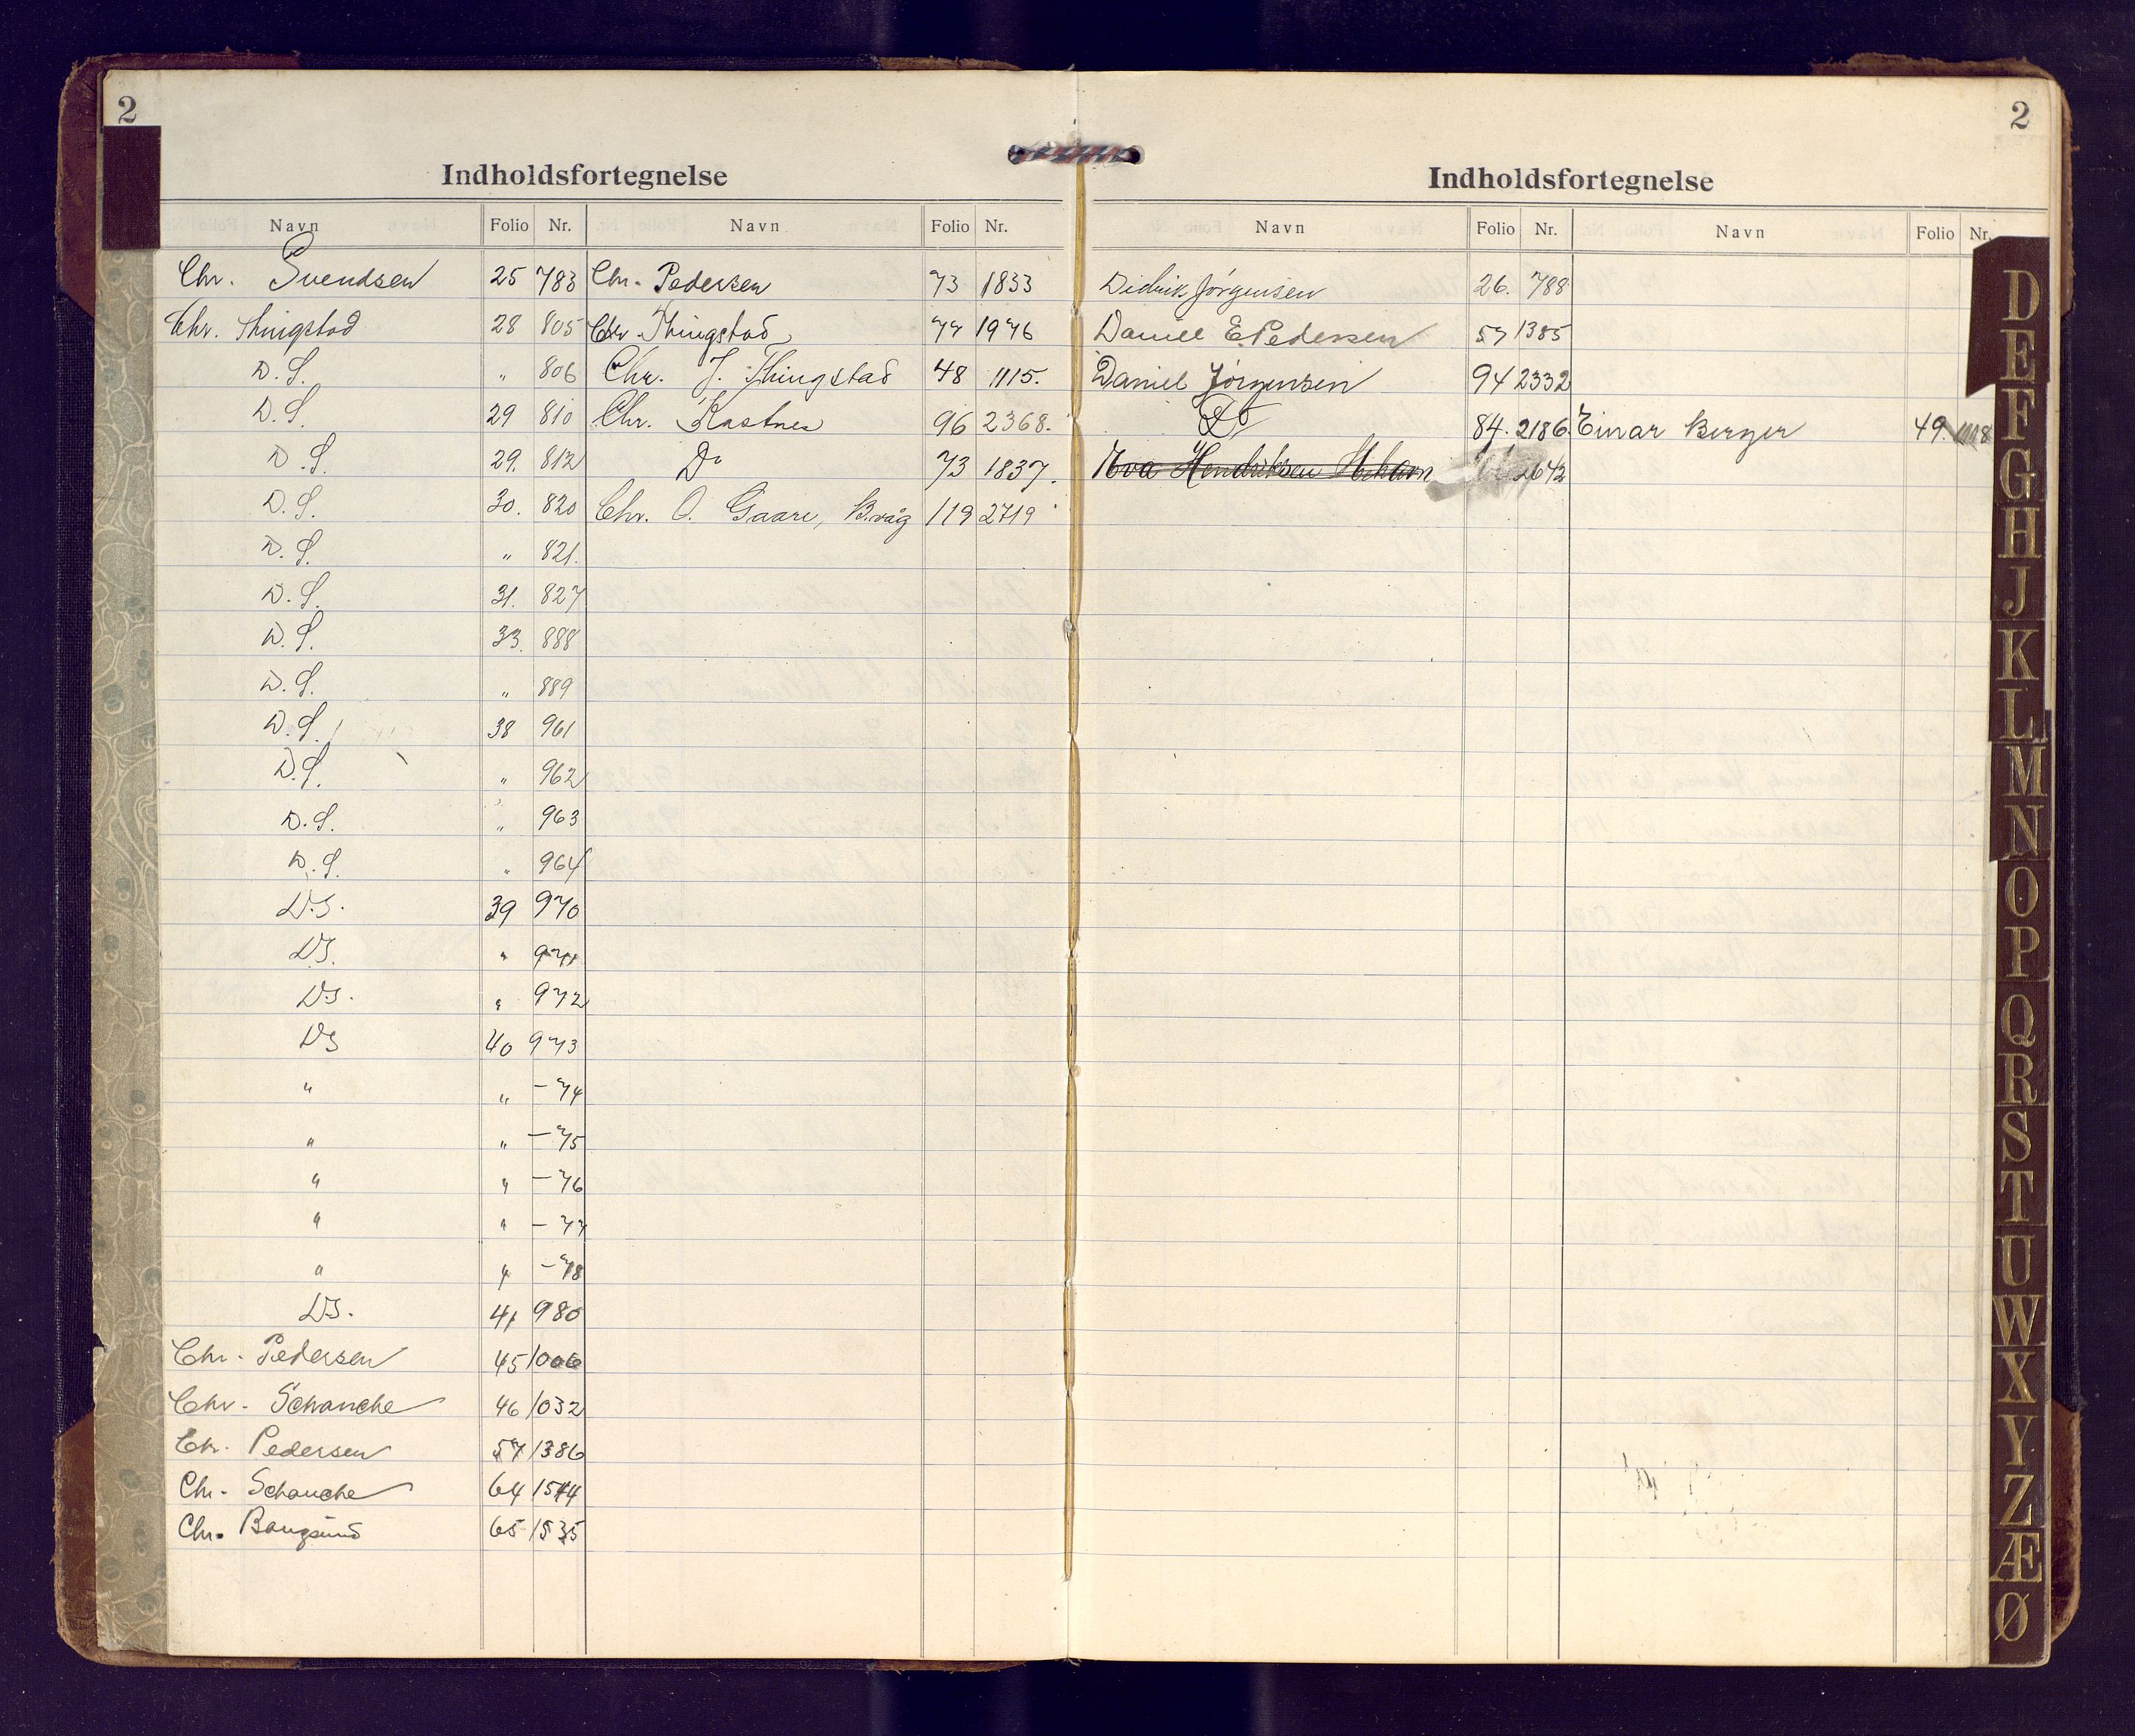 2
Indholdsfortegnelse
Navn Folio Nr. Navn Folio Nr.
Chr. Svendsen 25 783
Chr. Thingstad 28 805
D.S. " 806
D.S. 29 810
D.S. 29. 812
D.S. 30. 820
D.S. " 821.
D.S. 31. 827
D.S. 33. 888
D.S. " 889
D.S. 38 961
D.S. " 962
D.S. " 963
D.S. " 964
D.S. 39 970
D.S. " 971
D.S. " 972
D.S 40 973
" " - 74
" " - 75
" " - 76
" " - 77
" " - 78
D.S. 41 980
Chr. Pedersen 45 1006
Chr. Schanche 46 1032
Chr. Pedersen 57 1386
Chr. Schanche 64 1514
Chr. Bangsund 65 1535
Chr. Pedersen 73 1833
Chr. Thingstad 77 1976
Chr. J. Thingstad 48 1115.
Chr. Kastnes 96 2368.
Do 73 1837.
Chr. O. Gaare, B.våg 119 2719
2
Indholdsfortegnelse
Navn Folio Nr. Navn Folio Nr.
Didrik Jörgensen 26. 788
Daniel E. Pedersen 57 1385
Daniel Jörgensen 94 2332
Do 84. 2186.
Eva Hendriksen 2642
Einar Berger 49. 1118
D
E
F
G
H
J
K
L
M
N
O
P
Q
R
S
T
U
W
X
Y
Z
Æ
Ø